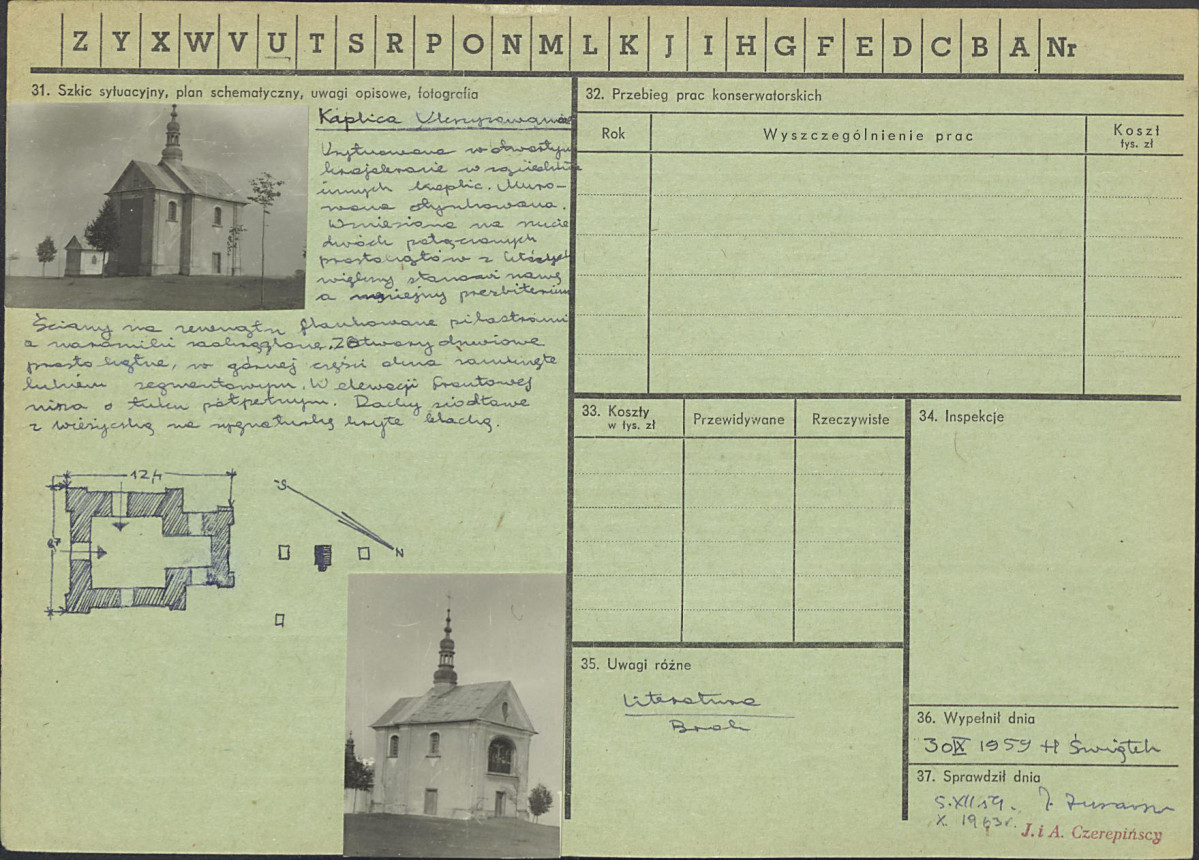 Z Y X W V U T S R P O N M L K J I H G F E D C B A Nr
31. Szkic sytuacyjny, plan schematyczny, uwagi opisowe, fotografia
Kaplica
Usytuowana w otwartym
krajobrazie w sąsiedztwie
innych kaplic. Muro-
wana otynkowana.
Wzniesiona na rzucie
dwóch połączonych
prostokątów z których
większy stanowi nawę
a mniejszy prezbiterium
Ściany na zewnątrz flankowane pilastrami
a narożniki zaokrąglone. Otwory drzwiowe
prostokątne, w górnej części okna zamknięte
łukiem segmentowym. W elewacji frontowej
nisza o łuku półpełnym. Dachy siodłowe
z wieżyczką na sygnaturkę kryte blachą.
12,4
S
N
32. Przebieg prac konserwatorskich
Rok
Wyszczególnienie prac
Koszt
tys. zł
33. Koszty
w tys. zł
Przewidywane
Rzeczywiste
34. Inspekcje
35. Uwagi różne
Literatura
Brak
36. Wypełnił dnia
30 IX 1959 H Świątek
37. Sprawdził dnia
5.XII 59.
X. 1963r.
J. i A. Czerepińscy